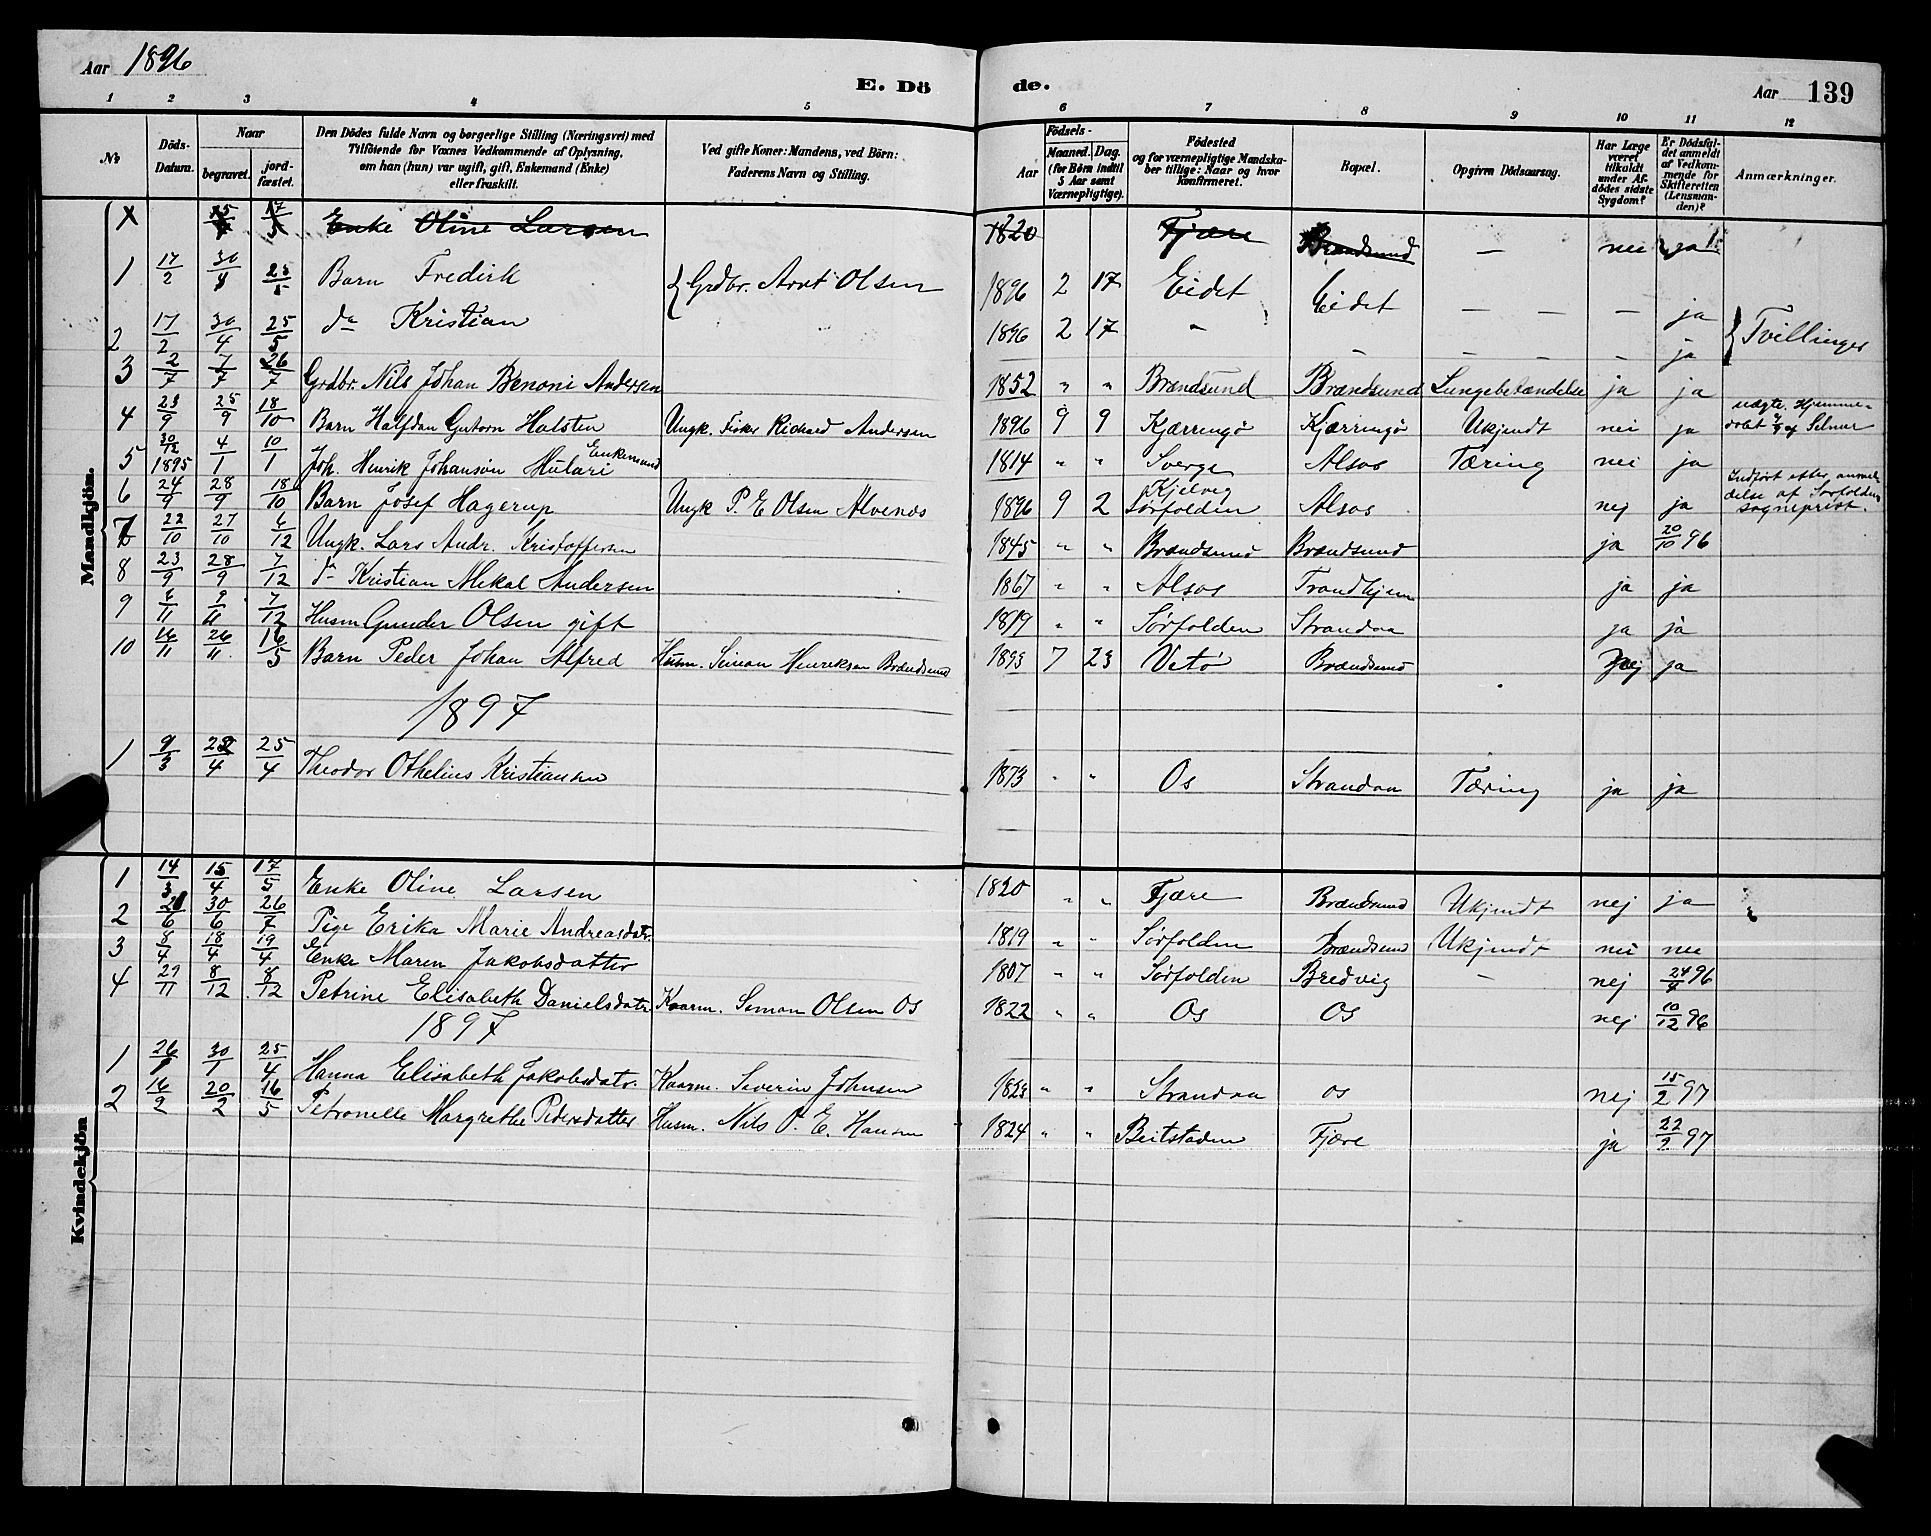 Aar 1896 E. Dö de. Aar 139
1 2 3 4 5 6 7 8 9 10 11 12
№ Döds-Datum. Naar begravet. jordfæstet. Den Dödes fulde Navn og borgerlige Stilling (Næringsvei) med Tilföiende for Voxnes Vedkommende af Oplysning, om han (hun) var ugift, gift, Enkemand (Enke) eller fraskilt. Ved gifte Koner: Mandens, ved Börn: Faderens Navn og Stilling. Födsels- Aar Maaned. Dag. (for Börn indtil 5 Aar samt Værnepligtige). Födested og for værnepligtige Mandskaber tillige: Naar og hvor konfirmeret. Bopæl. Opgiven Dödsaarsag. Har Læge været tilkaldt under Afdödes sidste Sygdom? Er Dödsfaldet anmeldt af Vedkommende for Skifteretten (Lensmanden)? Anmærkninger.
Mandkjön.
X 17/5 Enke Oline Larsen 1820 Fjære Brændsund — nei ja
1 17/2 30/4 25/5 Barn Fredirk { Grdbr. Arnt Olsen 1896 2 17 Eidet Eidet — — — ja
2 17/2 30/4 25/5 do Kristian 1896 2 17 " — — — — ja } Tvillinger
3 2/7 7/7 26/7 Grdbr. Nils Johan Benoni Andersen 1852 " " Brændsund Brændsund Lungebetændelse ja ja
4 23/9 25/9 18/10 Barn Halfdan Gutorn Halsten Ungk. Fisker Richard Andersen 1896 9 9 Kjærringø Kjærringø Ukjendt nei ja uægte. Hjemmedøbt af Selmer
5 30/12 1895 4/1 10/1 Joh. Henrik Johanson Mulari Enkemand 1814 " " Sverge Alsos Tæring nei ja
6 24/9 28/9 18/10 Barn Josef Hagerup Ungk P. E Olsen Alvenes 1896 9 2 Kjelvig Sørfolden Alsos nej ja Indført efter anmeldelse af Sørfoldens sogneprest.
7 22/10 27/10 6/12 Ungk. Lars Andr. Kristoffersen 1845 " " Brændsund Brændsund ja 20/10 96
8 23/9 28/9 7/12 do Kristian Mekal Andersen 1867 " " Alsos Trondhjem ja ja
9 4/11 9/11 7/12 Husm Gunder Olsen gift 1819 " " Sørfolden Strandaa ja ja
10 16/11 26/11 16/5 Barn Peder Johan Alfred Husm. Simon Henriksen Brændsund 1893 7 23 Vetø Brændsund nej ja
1897
1 9/3 22/4 25/4 Theodor Othelius Kristiansen 1873 " " Os Strandaa Tæring ja ja
Kvindekjön
1 14/3 15/4 17/5 Enke Oline Larsen 1820 " " Fjære Brændsund Ukjendt nej ja
2 21/6 30/6 26/7 Pige Erika Marie Andreasdatr. 1819 " " Sørfolden Brændsund Ukjendt nei nei
3 8/4 18/4 19/4 Enke Maren Jakobsdatter 1807 " " Sørfolden Bredvig — nej 24/4 96
4 29/11 8/12 8/12 Petrine Elisabeth Danielsdatr. Kaarm. Simon Olsen Os 1822 " " Os Os nej 10/12 96
1897
1 26/1 30/1 25/4 Hanna Elisabeth Jakobsdatr. Kaarm. Severin Johnsen 1823 " " Strandaa Os nej 15/2 97
2 16/2 20/2 16/5 Petronelle Margrethe Pedersdatter Husm. Nils P. E. Hansen 1824 " " Beitstaden Fjære ja 22/2 97